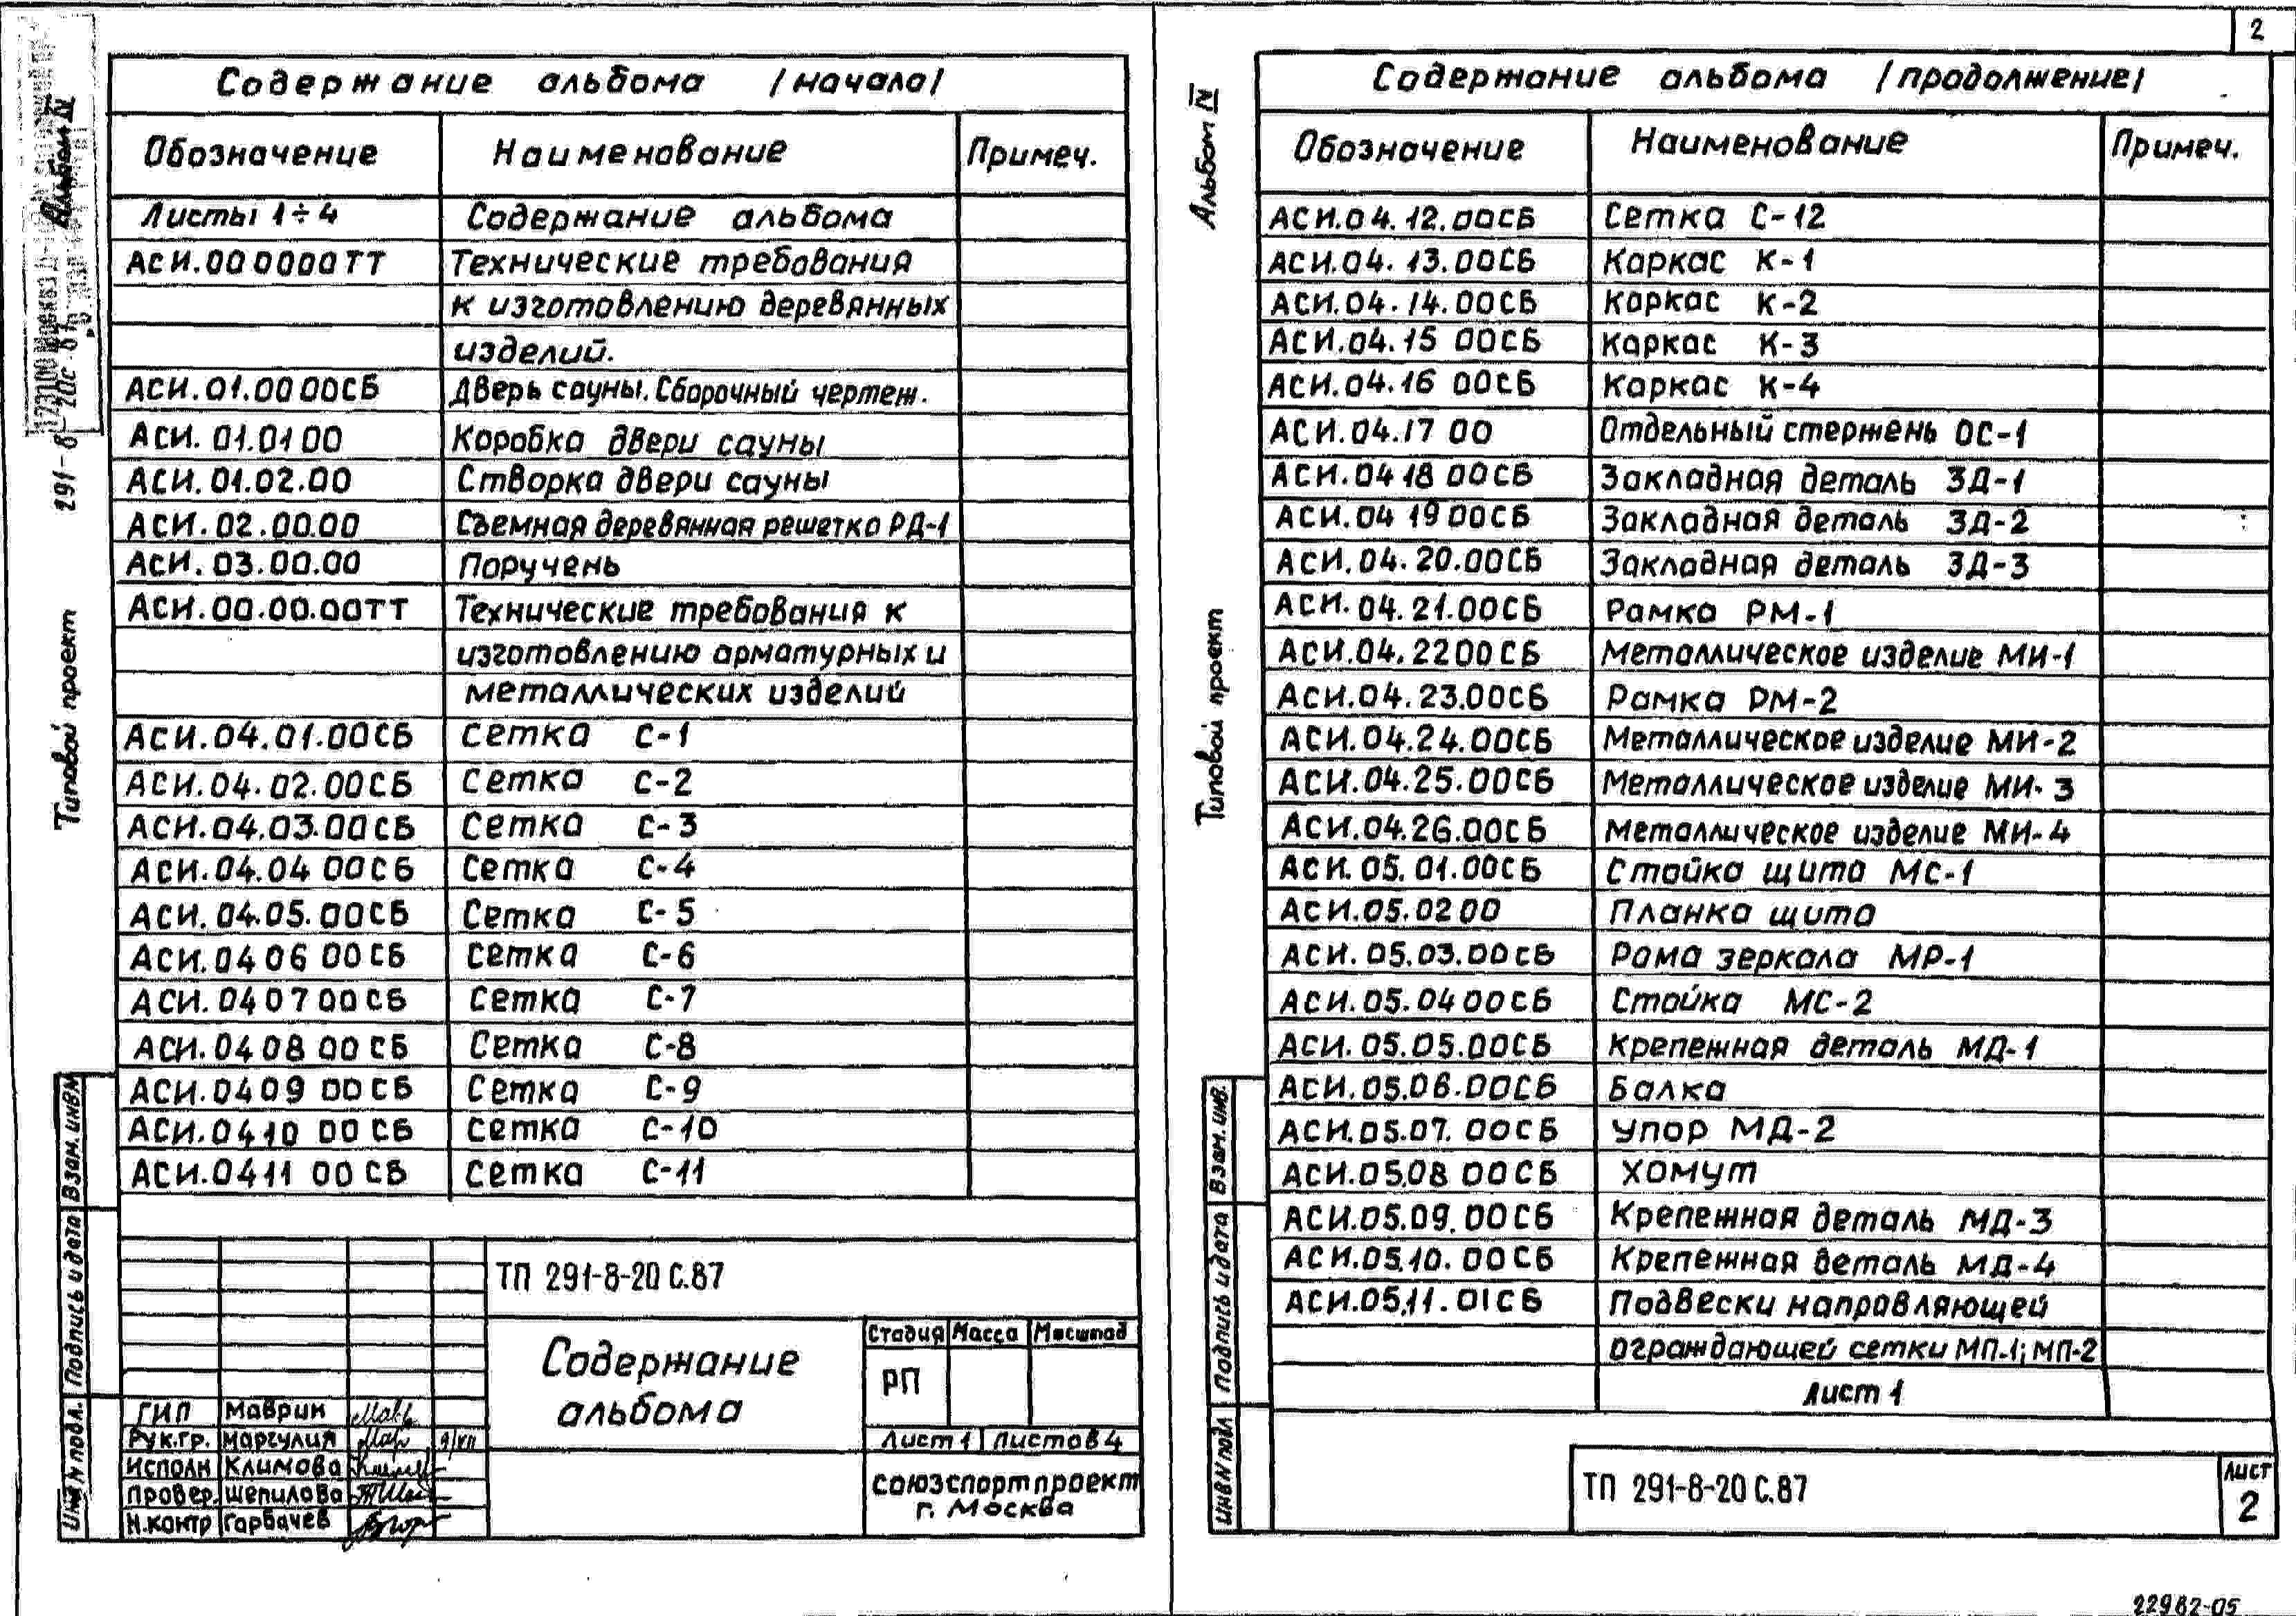 Содержание альбома /начало/
Обозначение Наименование Примеч.
Листы 1÷4 Содержание альбома
АСИ.000000ТТ Технические требования
к изготовлению деревянных
изделий.
АСИ.01.0000СБ Дверь сауны. Сборочный чертеж.
АСИ.01.0100 Коробка двери сауны
АСИ.01.02.00 Створка двери сауны
АСИ.02.00.00 Съемная деревянная решетка РД-1
АСИ.03.00.00 Поручень
АСИ.00.00.00ТТ Технические требования к
изготовлению арматурных и
металлических изделий
АСИ.04.01.00СБ Сетка С-1
АСИ.04.02.00СБ Сетка С-2
АСИ.04.03.00СБ Сетка С-3
АСИ.04.04 00СБ Сетка С-4
АСИ.04.05.00СБ Сетка С-5
АСИ.04 06 00СБ Сетка С-6
АСИ.04 07 00СБ Сетка С-7
АСИ.04 08 00СБ Сетка С-8
АСИ.04 09 00СБ Сетка С-9
АСИ.04 10 00СБ Сетка С-10
АСИ.04 11 00СБ Сетка С-11
ТП 291-8-20 С.87
Содержание
альбома
Стадия Масса Масштаб
РП
Лист 1 Листов 4
Союзспортпроект
г. Москва
ГИП Маврин
Рук.гр. Маргулия 9/VII
Исполн Климова
Провер. Шепилова
Н.контр Горбачев
Альбом IV
Типовой проект 291-8-20с.87
Взам. инв.N
Подпись и дата
Инв N подл.
2
Содержание альбома /продолжение/
Обозначение Наименование Примеч.
АСИ.04.12.00СБ Сетка С-12
АСИ.04.13.00СБ Каркас К-1
АСИ.04.14.00СБ Каркас К-2
АСИ.04.15 00СБ Каркас К-3
АСИ.04.16 00СБ Каркас К-4
АСИ.04.17 00 Отдельный стержень ОС-1
АСИ.04 18 00СБ Закладная деталь ЗД-1
АСИ.04 19 00СБ Закладная деталь ЗД-2
АСИ.04.20.00СБ Закладная деталь ЗД-3
АСИ.04.21.00СБ Рамка РМ-1
АСИ.04.2200СБ Металлическое изделие МИ-1
АСИ.04.23.00СБ Рамка РМ-2
АСИ.04.24.00СБ Металлическое изделие МИ-2
АСИ.04.25.00СБ Металлическое изделие МИ-3
АСИ.04.26.00СБ Металлическое изделие МИ-4
АСИ.05.01.00СБ Стойка щита МС-1
АСИ.05.0200 Планка щита
АСИ.05.03.00СБ Рама зеркала МР-1
АСИ.05.0400СБ Стойка МС-2
АСИ.05.05.00СБ Крепежная деталь МД-1
АСИ.05.06.00СБ Балка
АСИ.05.07.00СБ Упор МД-2
АСИ.05.08 00СБ Хомут
АСИ.05.09.00СБ Крепежная деталь МД-3
АСИ.05.10.00СБ Крепежная деталь МД-4
АСИ.05.11.01СБ Подвески направляющей
ограждающей сетки МП-1; МП-2
Лист 1
ТП 291-8-20 С.87
Лист
2
Альбом IV
Типовой проект
Взам. инв.
Подпись и дата
Инв N подл
22982-05